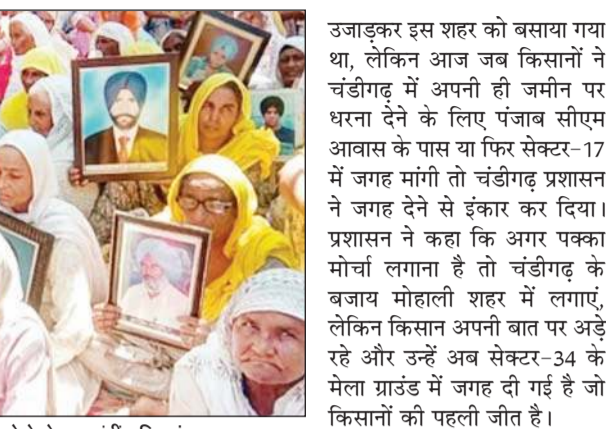 उजाड़कर इस शहर को बसाया गया
था, लेकिन आज जब किसानों ने
चंडीगढ़ में अपनी ही जमीन पर
धरना देने के लिए पंजाब सीएम
आवास के पास या फिर सेक्टर-17
में जगह मांगी तो चंडीगढ़ प्रशासन
ने जगह देने से इंकार कर दिया।
प्रशासन ने कहा कि अगर पक्का
मोर्चा लगाना है तो चंडीगढ़ के
बजाय मोहाली शहर में लगाएं,
लेकिन किसान अपनी बात पर अड़े
रहे और उन्हें अब सेक्टर-34 के
मेला ग्राउंड में जगह दी गई है जो
किसानों की पहली जीत है।